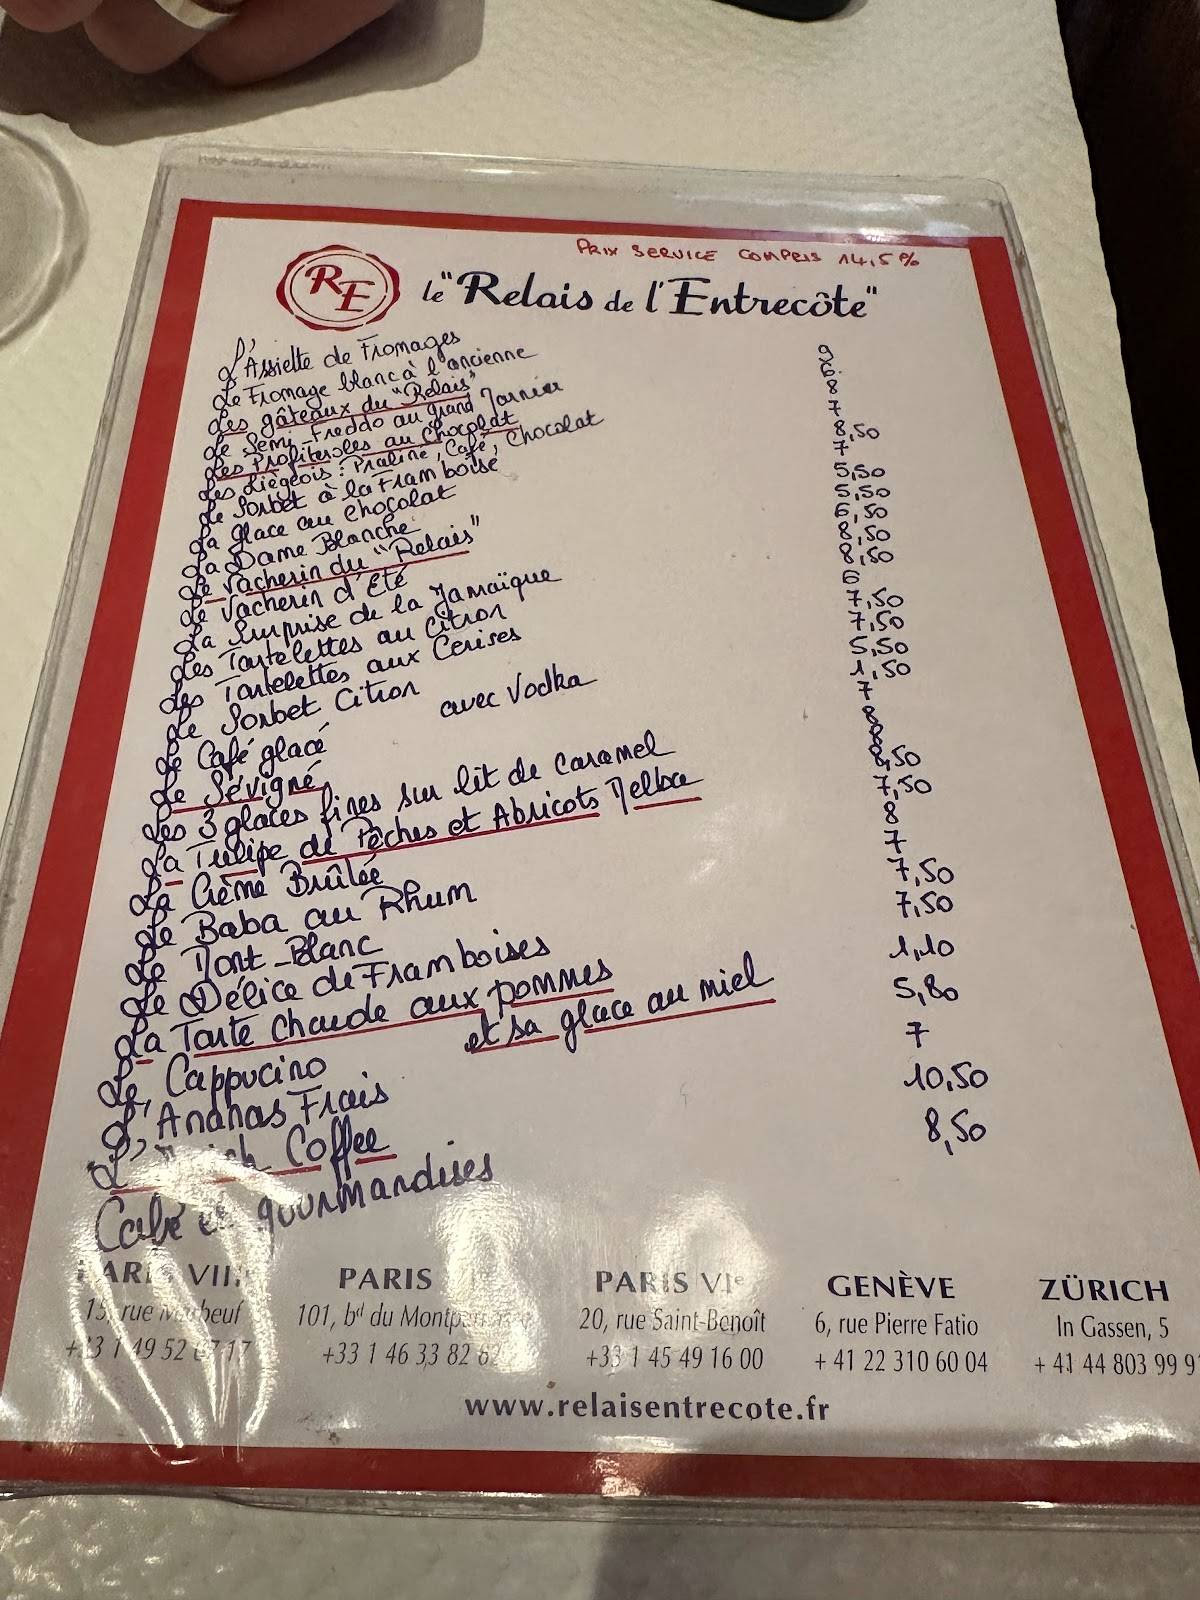 PRIX SERVICE COMPRIS 14,5%
RE
le "Relais de l'Entrecôte"
L'Assiette de Fromages 9
Le Fromage blanc à l'ancienne 6
Les gâteaux du "Relais" 8
Le Semi-Freddo au Grand Marnier 7
Les Profiteroles au Chocolat 8,50
Les Liégeois : Praline, Café, Chocolat 7
Le Sorbet à la Framboise 5,50
La Glace au Chocolat 5,50
La Dame Blanche 6,50
Le Vacherin du "Relais" 8,50
Le Vacherin d'Eté 8,50
La Surprise de la Jamaïque 6
Les Tartelettes au Citron 7,50
Les Tartelettes aux Cerises 7,50
Le Sorbet Citron 5,50
avec Vodka 1,50
Le Café glacé 7
Le Sévigné 8
Les 3 glaces fines sur lit de caramel 8
La Tulipe de Pêches et Abricots Melba 8,50
La Crème Brûlée 7,50
Le Baba au Rhum 8
Le Mont-Blanc 7
Le Délice de Framboises 7,50
La Tarte chaude aux pommes 7,50
et sa glace au miel 1,10
Le Cappucino 5,80
L'Ananas Frais 7
L' Coffee 10,50
Café et gourmandises 8,50
PARIS VIII
15, rue Marbeuf
+33 1 49 52 07 17
PARIS
101, bd du Montparnasse
+33 1 46 33 82 82
PARIS VIe
20, rue Saint-Benoît
+33 1 45 49 16 00
GENÈVE
6, rue Pierre Fatio
+ 41 22 310 60 04
ZÜRICH
In Gassen, 5
+ 41 44 803 99 9
www.relaisentrecote.fr